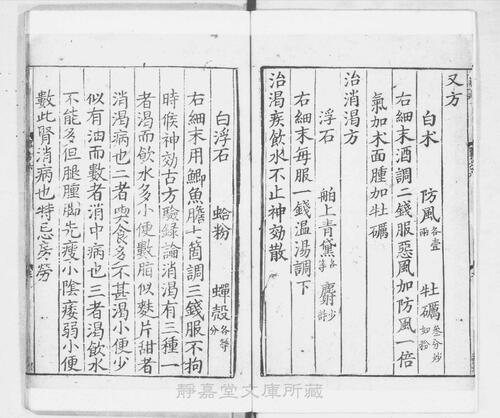 又方
白术 防風各壹兩 牡礪叁分炒如粉
右細末酒調二錢服惡風加防風一倍
氣加术面腫加牡礪
治消渴方
浮石 舶上青黛各等 麝少許
右細末每服一錢溫湯調下
治渴疾飲水不止神効散
白浮石 蛤粉 蟬殼各等分
右細末用鯽魚膽七箇調三錢服不拘
時候神効古方驗録論消渴有三種一
者渴而飲水多小便數脂似麩片甜者
消渴病也二者喫食多不甚渴小便少
似有油而數者消中病也三者渴飲水
不能多但腿腫脚先瘦小陰痿弱小便
數此腎消病也特忌房勞
靜嘉堂文庫所藏